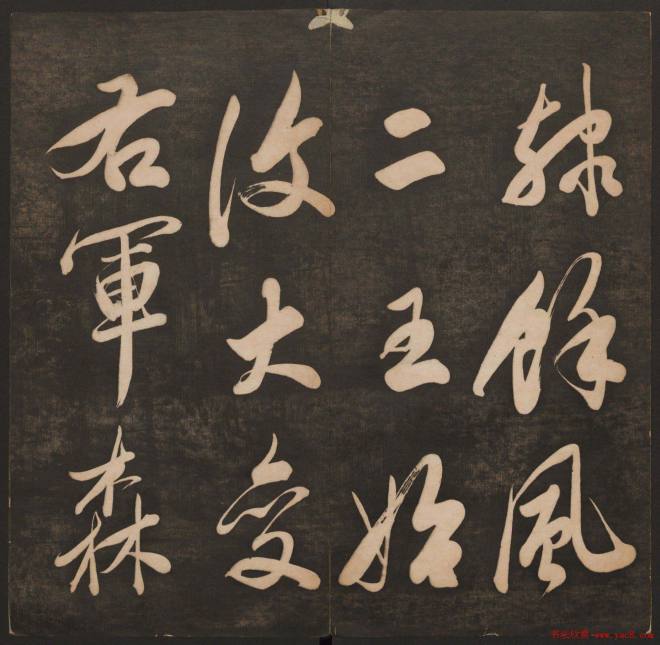 隸餘風
二王始
改大變
右軍森
书法欣赏-www.yac8.com